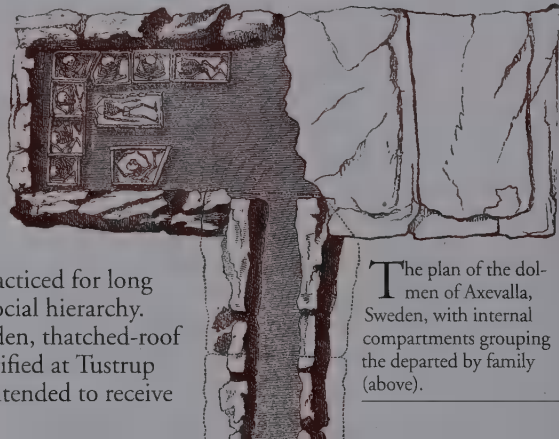 acticed for long
ocial hierarchy.
den, thatched-roof
ified at Tustrup
tended to receive
The plan of the dol-
men of Axevalla,
Sweden, with internal
compartments grouping
the departed by family
(above).